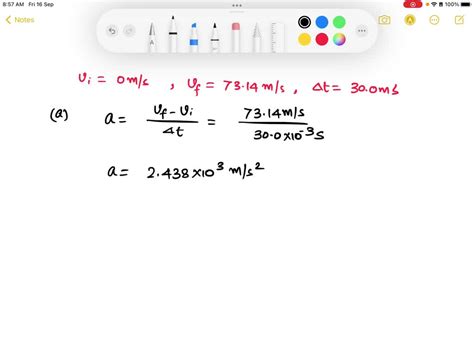 8:57 AM Fri 16 Sep
100%
Notes
vi = 0 m/s , vf = 73.14 m/s , Δt = 30.0 ms
(a) a = vf - vi / Δt = 73.14 m/s / 30.0 × 10^-3 s
a = 2.438 × 10^3 m/s^2